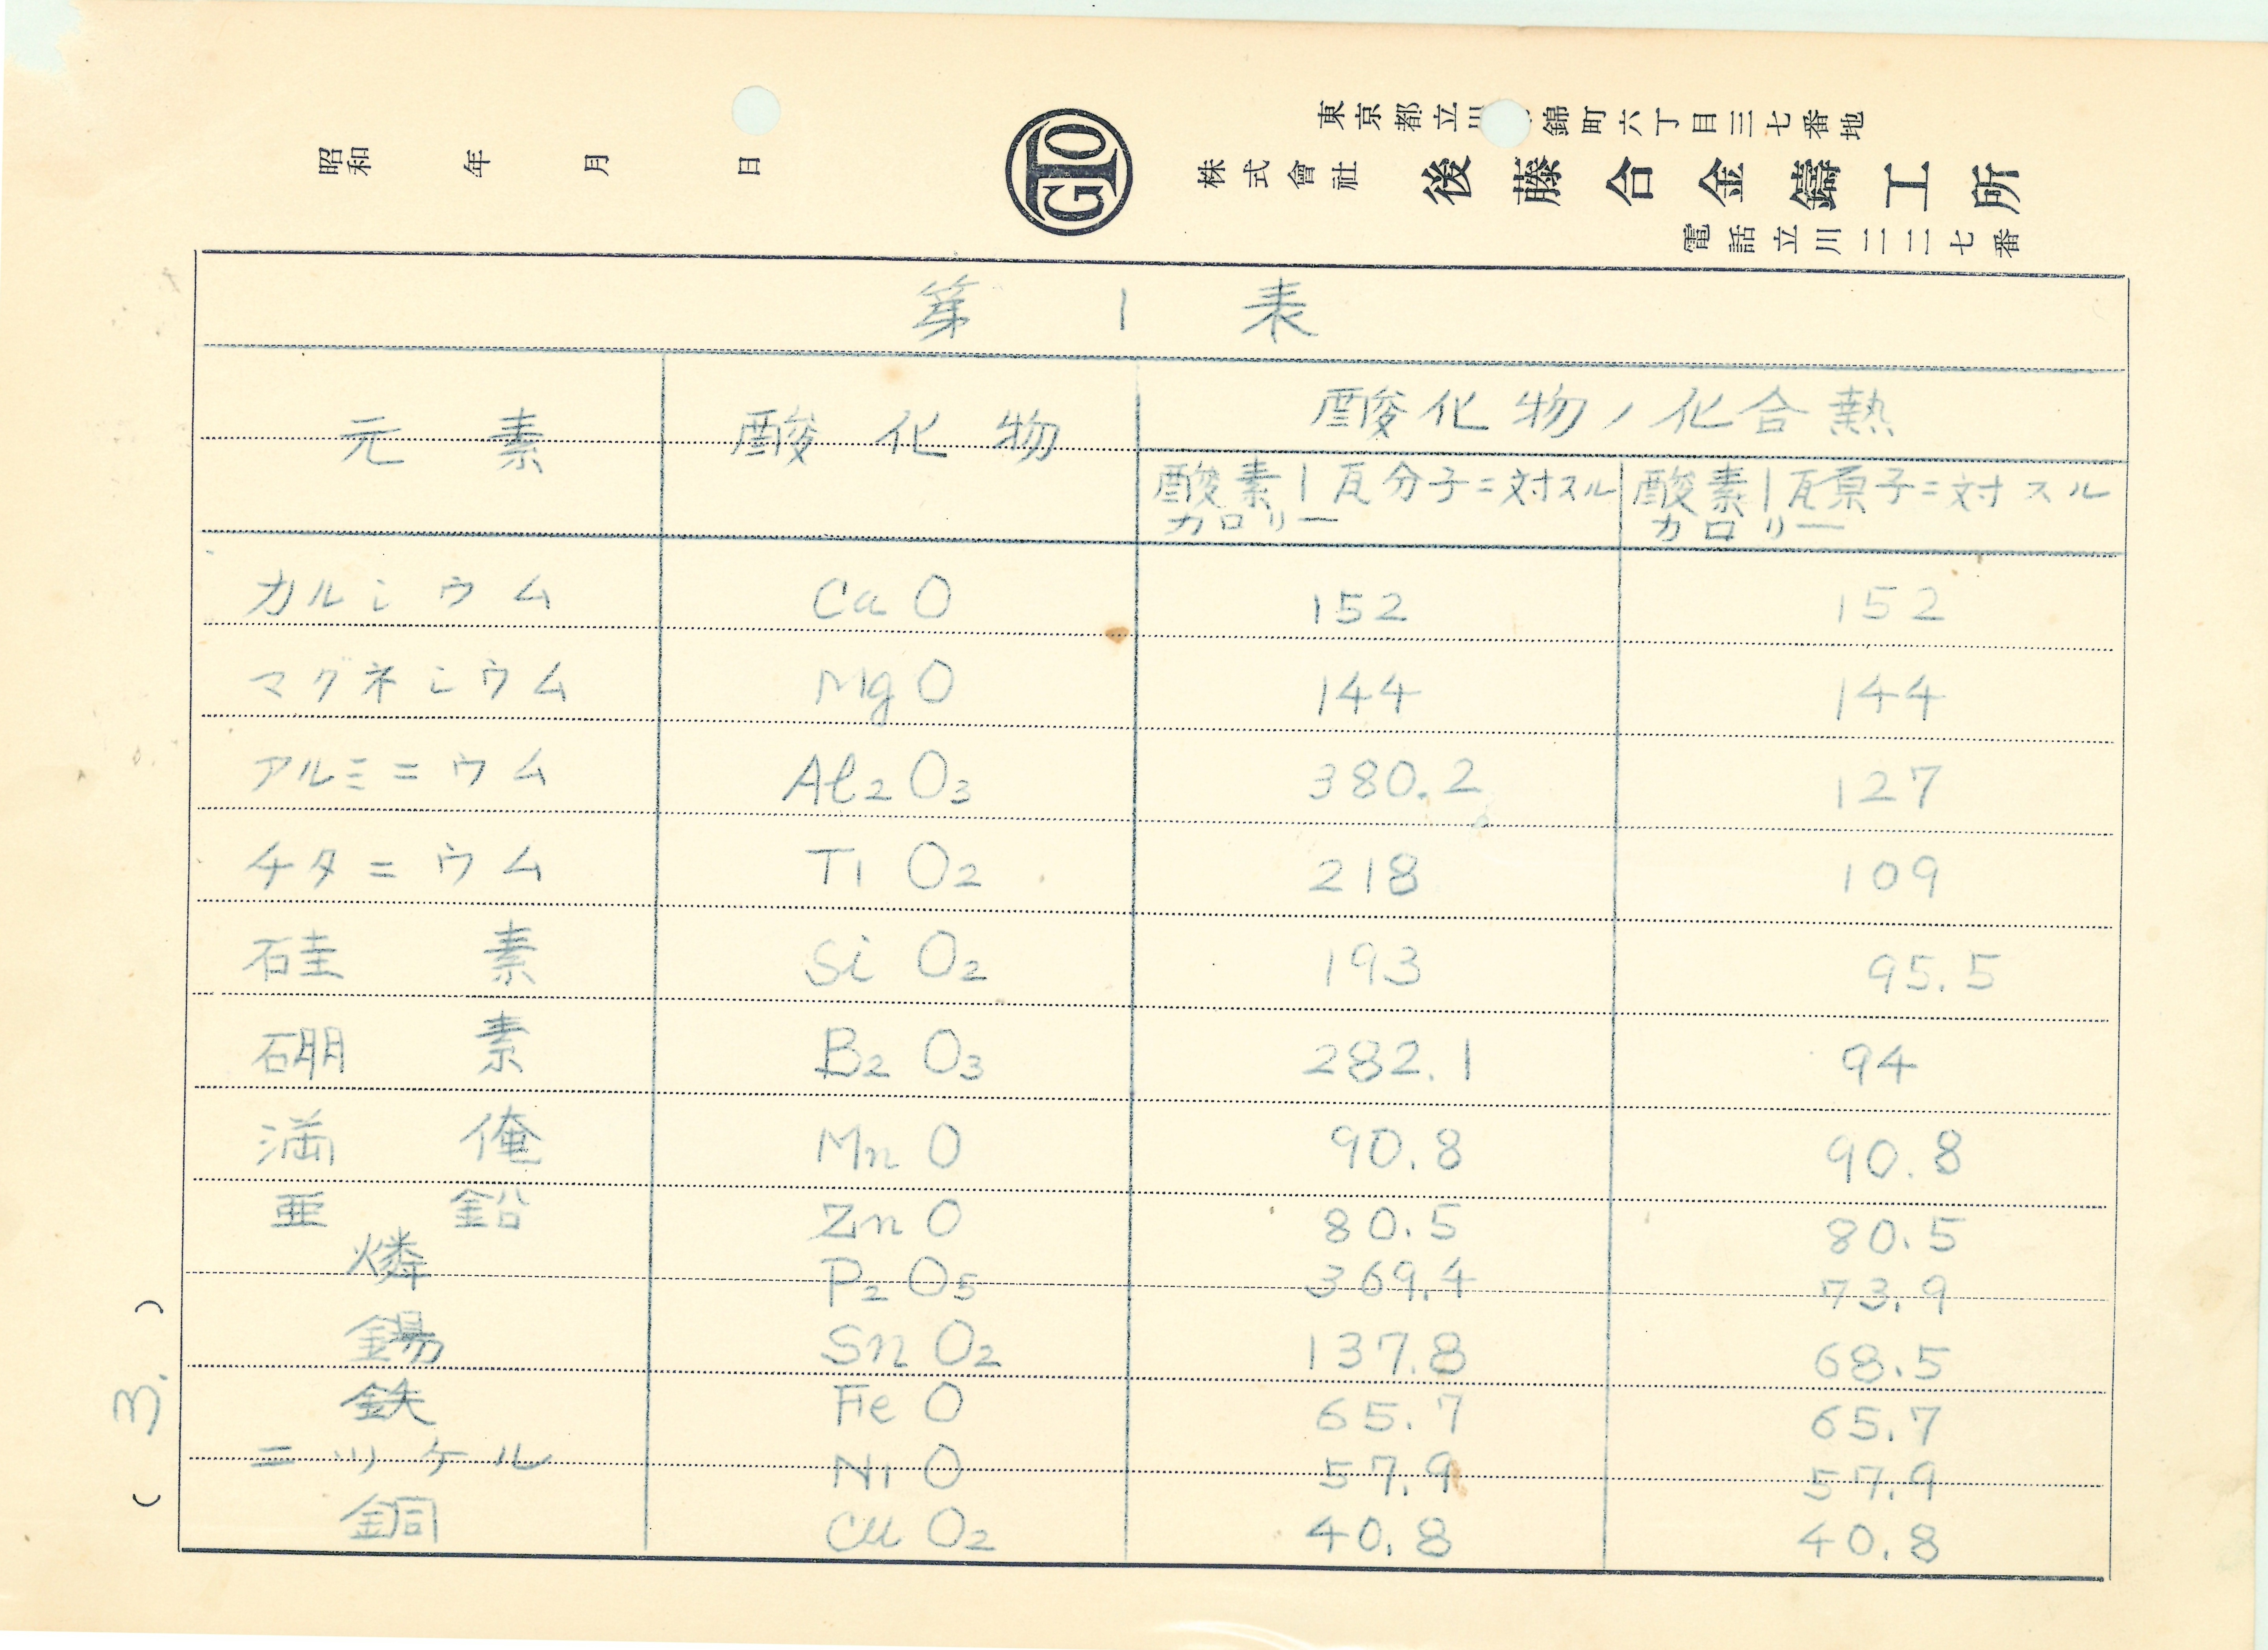 東京都立川 錦町六丁目三七番地
株式會社 後藤合金鑄工所
電話立川二二七番
GTO
昭和 年 月 日
第 1 表
元素 酸化物 酸化物ノ化合熱
酸素1瓦分子ニ対スルカロリー 酸素1瓦原子ニ対スルカロリー
カルシウム CaO 152 152
マグネシウム MgO 144 144
アルミニウム Al₂O₃ 380.2 127
チタニウム TiO₂ 218 109
硅素 SiO₂ 193 95.5
硼素 B₂O₃ 282.1 94
満俺 MnO 90.8 90.8
亜鉛 ZnO 80.5 80.5
燐 P₂O₅ 369.4 73.9
錫 SnO₂ 137.8 68.5
鉄 FeO 65.7 65.7
ニッケル NiO 57.9 57.9
銅 CuO₂ 40.8 40.8
(3.)